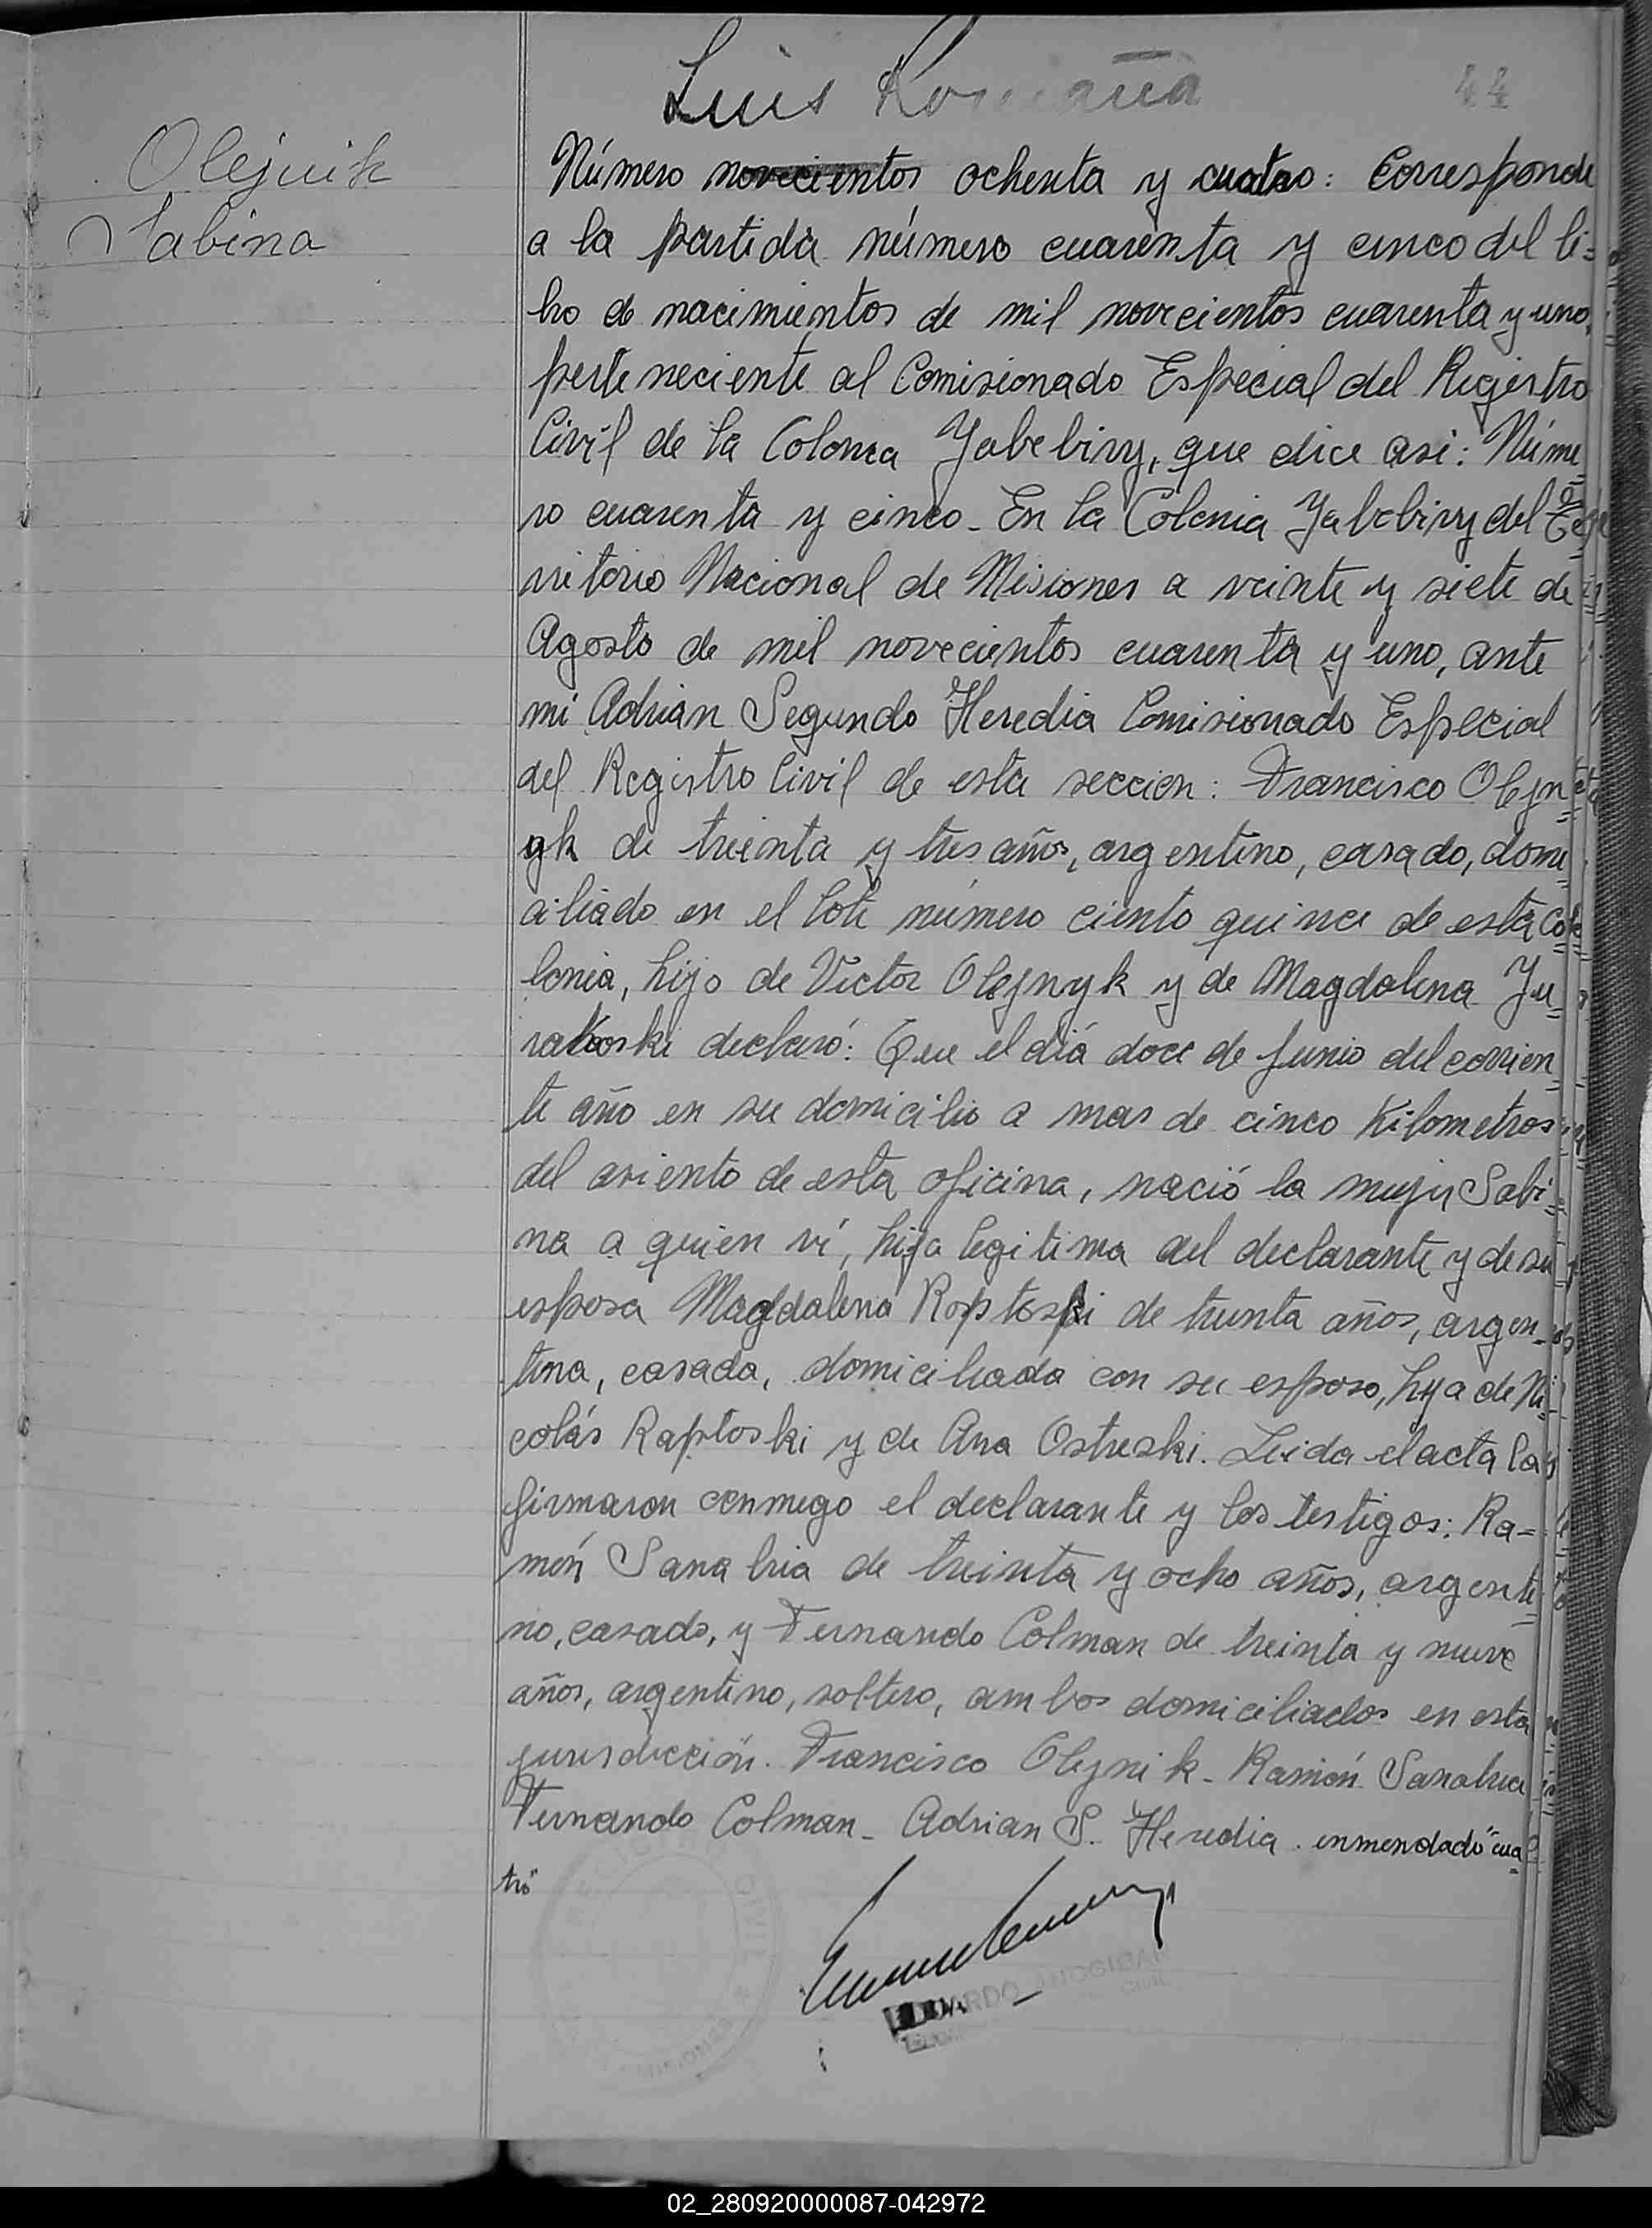 Luis Romaña
44
Olejnik
Sabina
Número novecientos ochenta y cuatro: Corresponde
a la partida número cuarenta y cinco del li=
bro de nacimientos de mil novecientos cuarenta y uno,
perteneciente al Comisionado Especial del Registro
Civil de la Colonia Yabebiry, que dice asi: Núme=
ro cuarenta y cinco - En la Colonia Yabebiry del Te=
rritorio Nacional de Misiones a veinte y siete de
Agosto de mil novecientos cuarenta y uno, ante
mi Adrian Segundo Heredia Comisionado Especial
del Registro Civil de esta seccion: Francisco Olejn=
yk de treinta y tres años, argentino, casado, domi=
ciliado en el lote número ciento quince de esta Co=
lonia, hijo de Victor Olejnyk y de Magdalena Ju=
rakoski declaró: Que el día doce de Junio del corrien=
te año en su domicilio a mas de cinco Kilometros
del asiento de esta oficina, nació la mujer Sabi=
na a quien ví, hija legitima del declarante y de su
esposa Magdalena Roptoski de treinta años, argen=
tina, casada, domiciliada con su esposo, hija de Ni=
colás Raptoski y de Ana Ostreski. Leida el acta la
firmaron conmigo el declarante y los testigos: Ra=
món Sanabria de treinta y ocho años, argenti=
no, casado, y Fernando Colman de treinta y nueve
años, argentino, soltero, ambos domiciliados en esta
jurisdicción. Francisco Olejnik - Ramón Sanabria
Fernando Colman - Adrian S. Heredia. enmendado "cua=
tro"
02_280920000087-042972